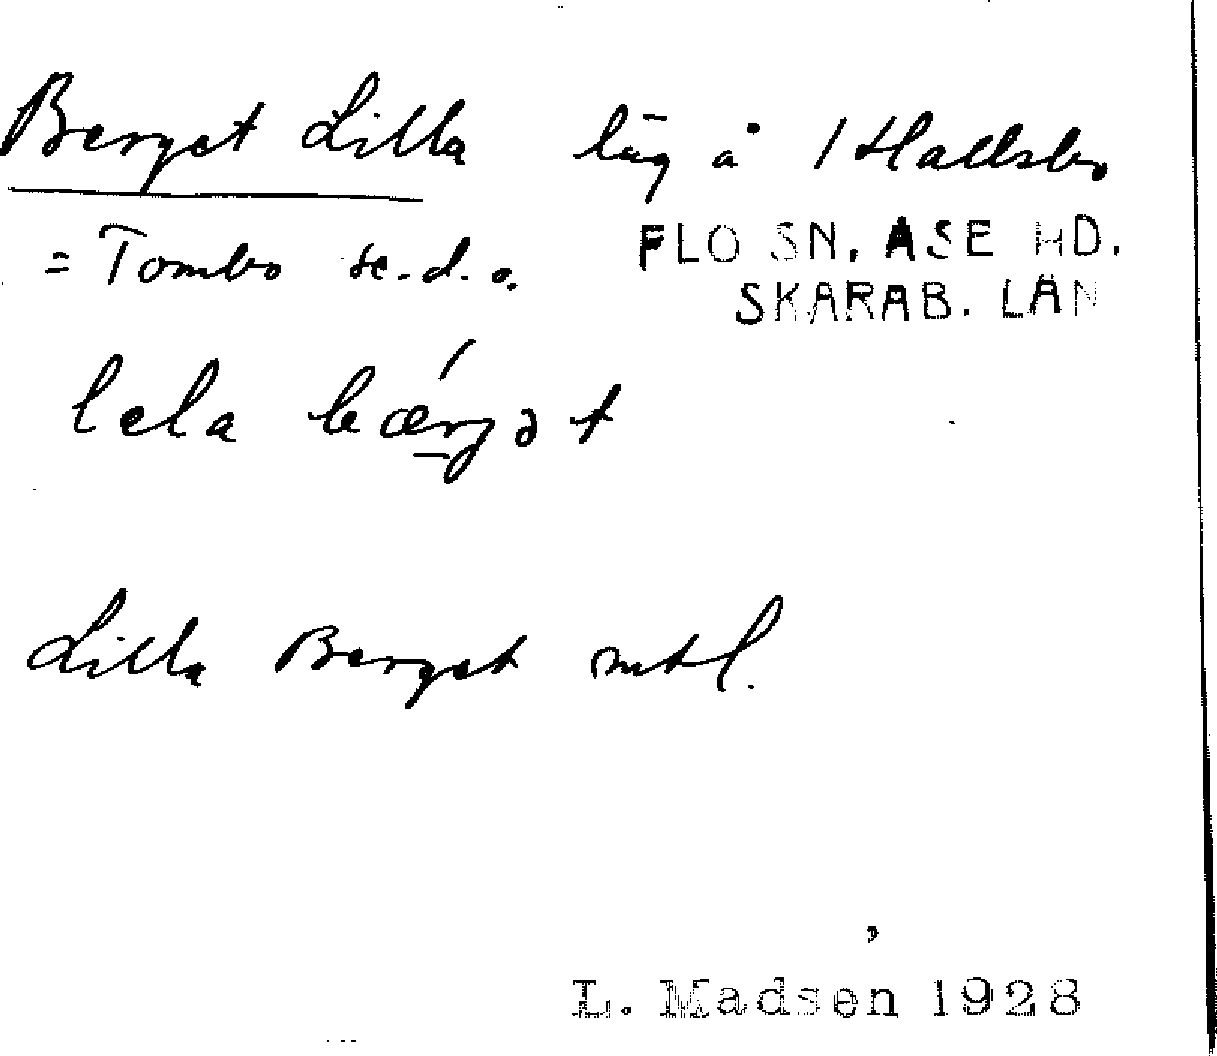 Berget Lilla läg å 1 Hallsbo
= Tombo se. d. o.
FLO SN. ÅSE HD.
SKARAB. LÄN
lela bǽrjət
Lilla Berget mtl.
L. Madsen 1928